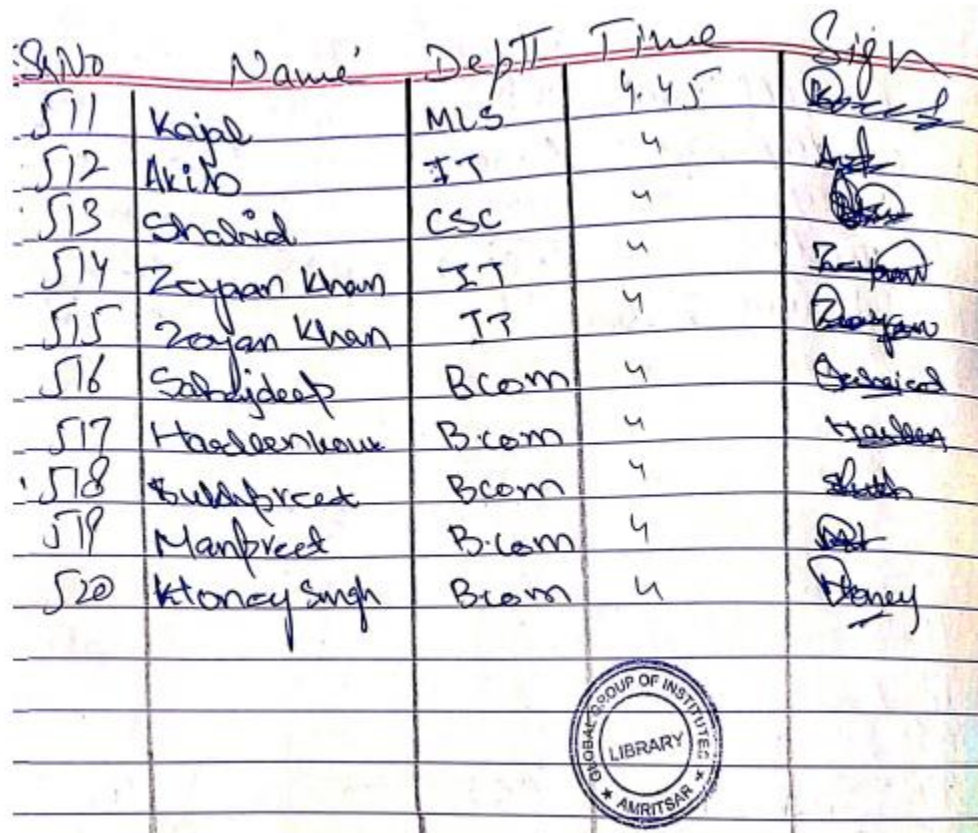 Sr.No Name Deptt Time Sign
511 Kajal MLS 4.45
512 Akib IT 4
513 Shahid CSC 4
514 Zeypan Khan IT 4
515 Zoyan Khan IT 4 Zoyan
516 Sahajdeep Bcom 4
517 Harleenkour B.com 4 Harleen
518 Sukhpreet Bcom 4 Sukh
519 Manpreet B.com 4
520 Honey Singh Bcom 4 Honey
GLOBAL GROUP OF INSTITUTES
LIBRARY
AMRITSAR